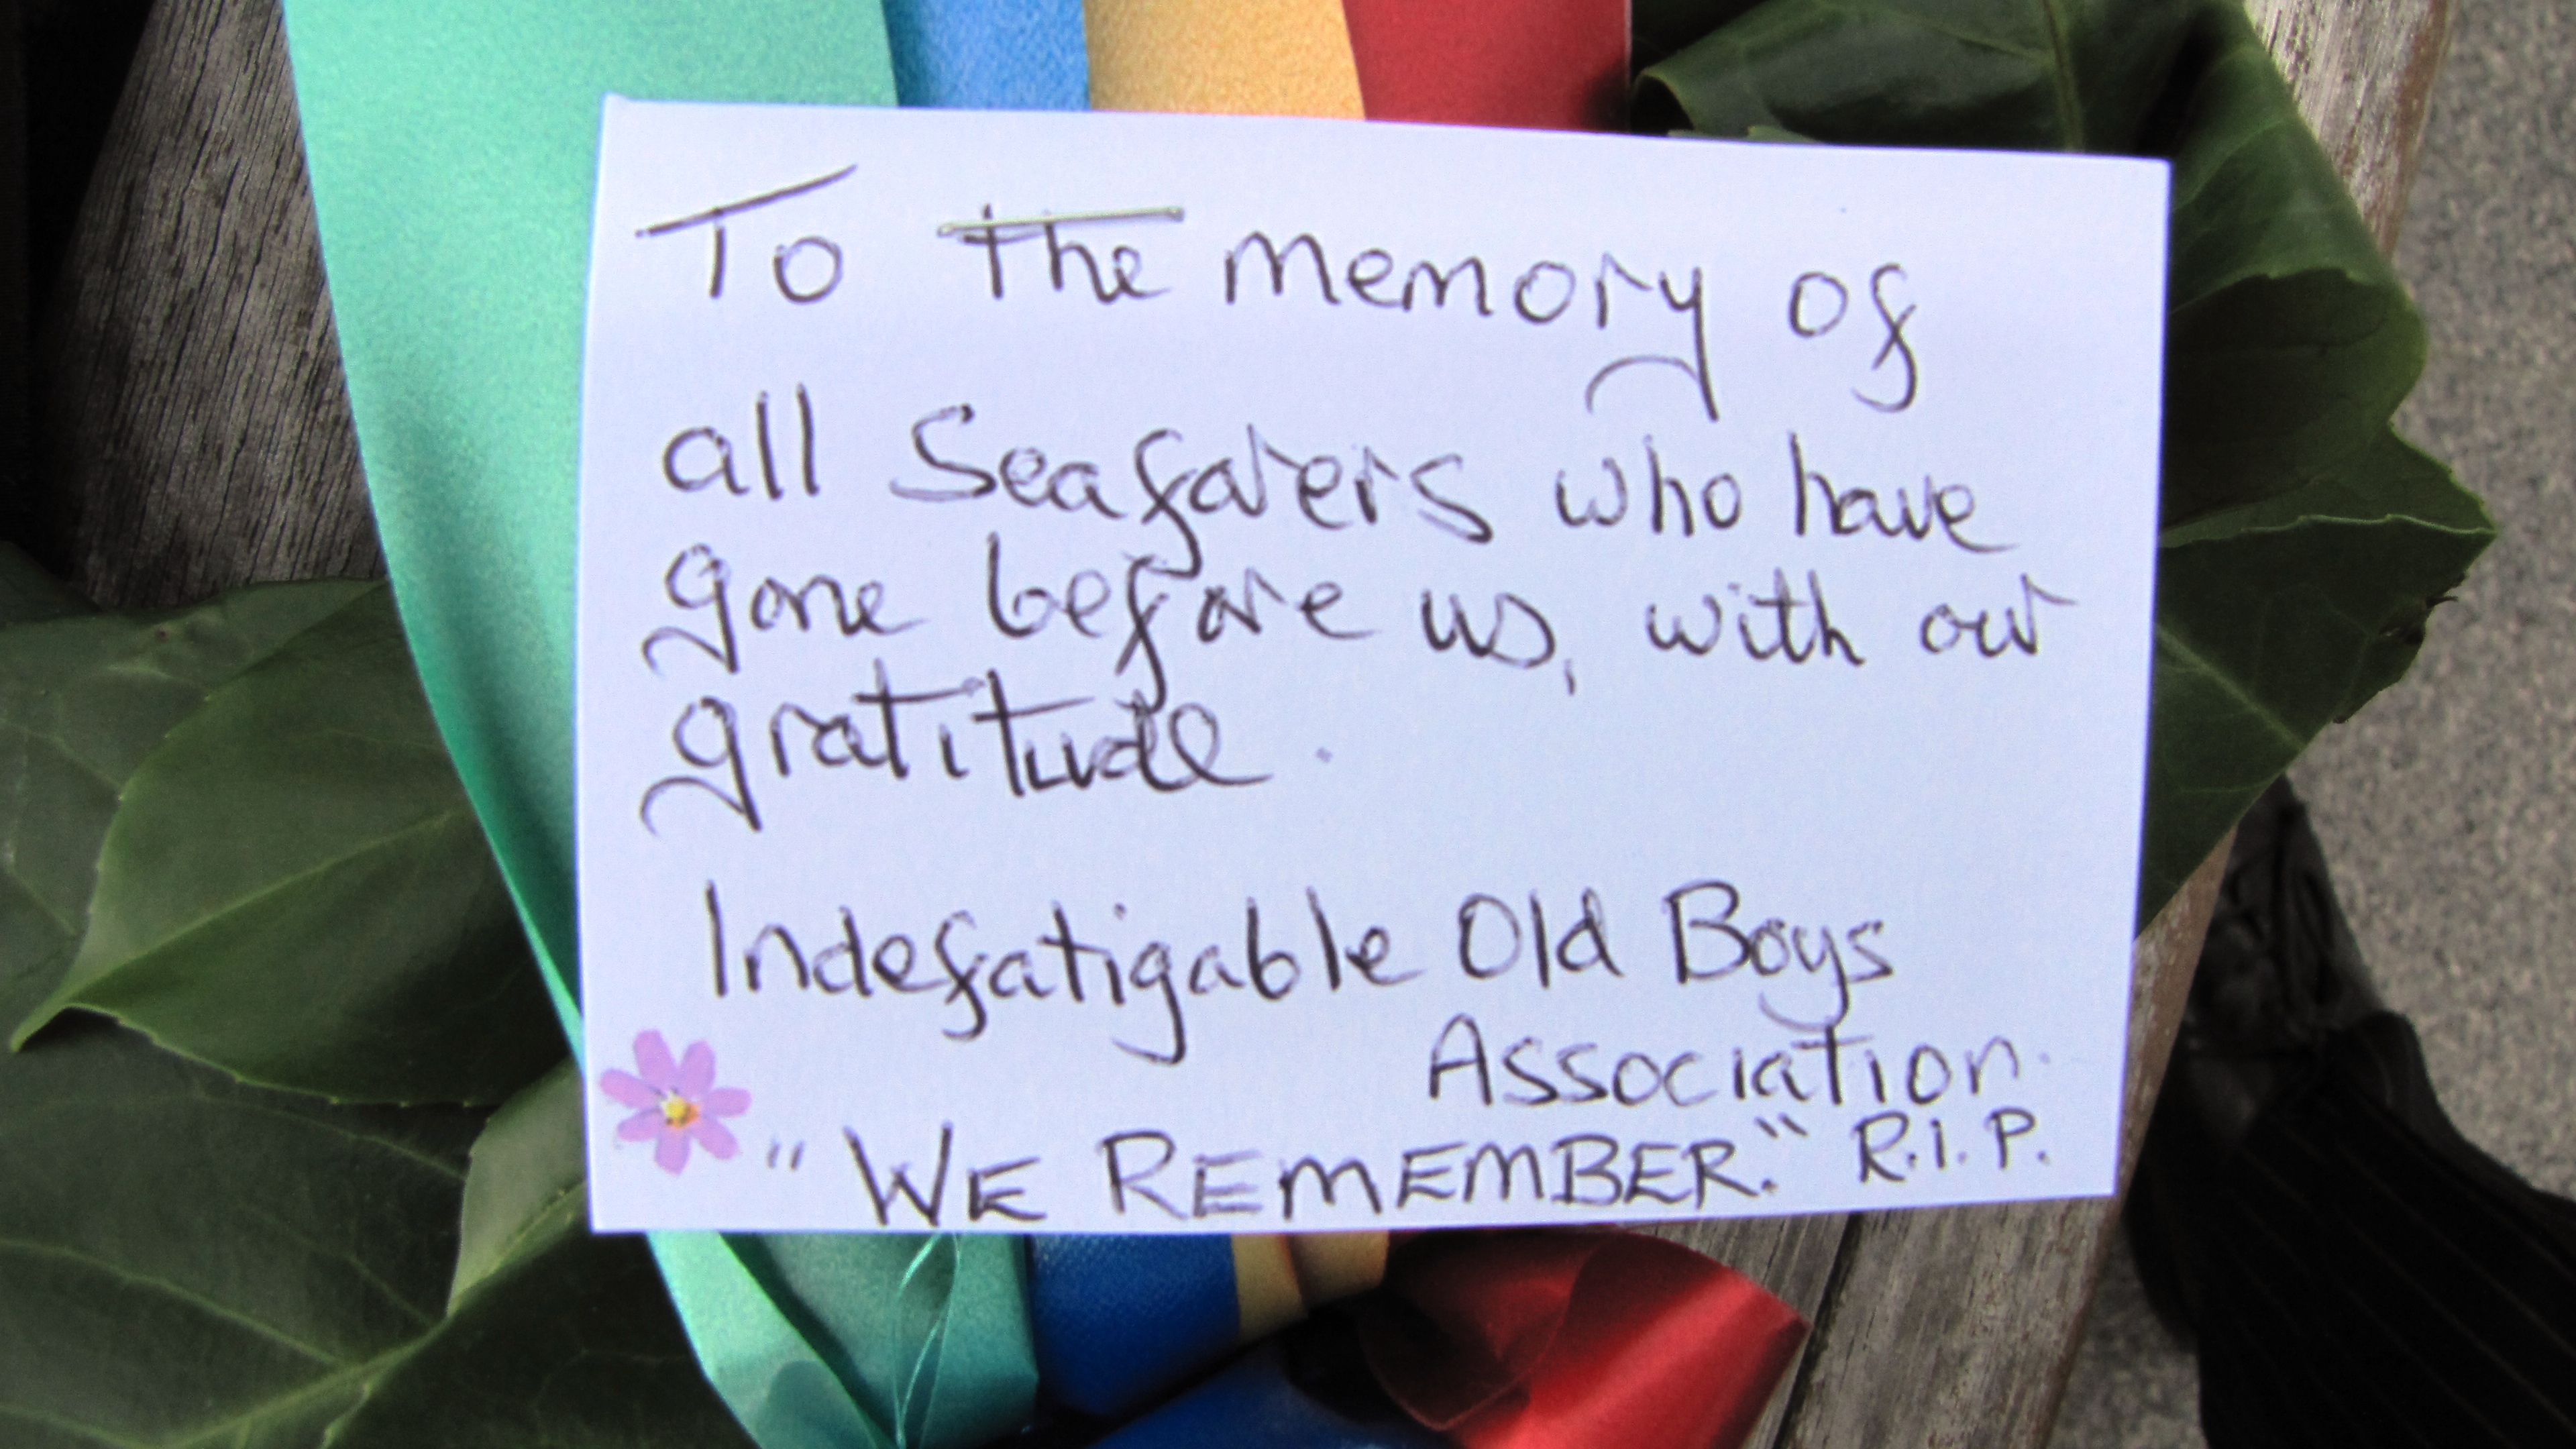 To the memory of
all Seafarers who have
gone before us, with our
gratitude.
Indefatigable Old Boys
Association.
"WE REMEMBER." R.I.P.